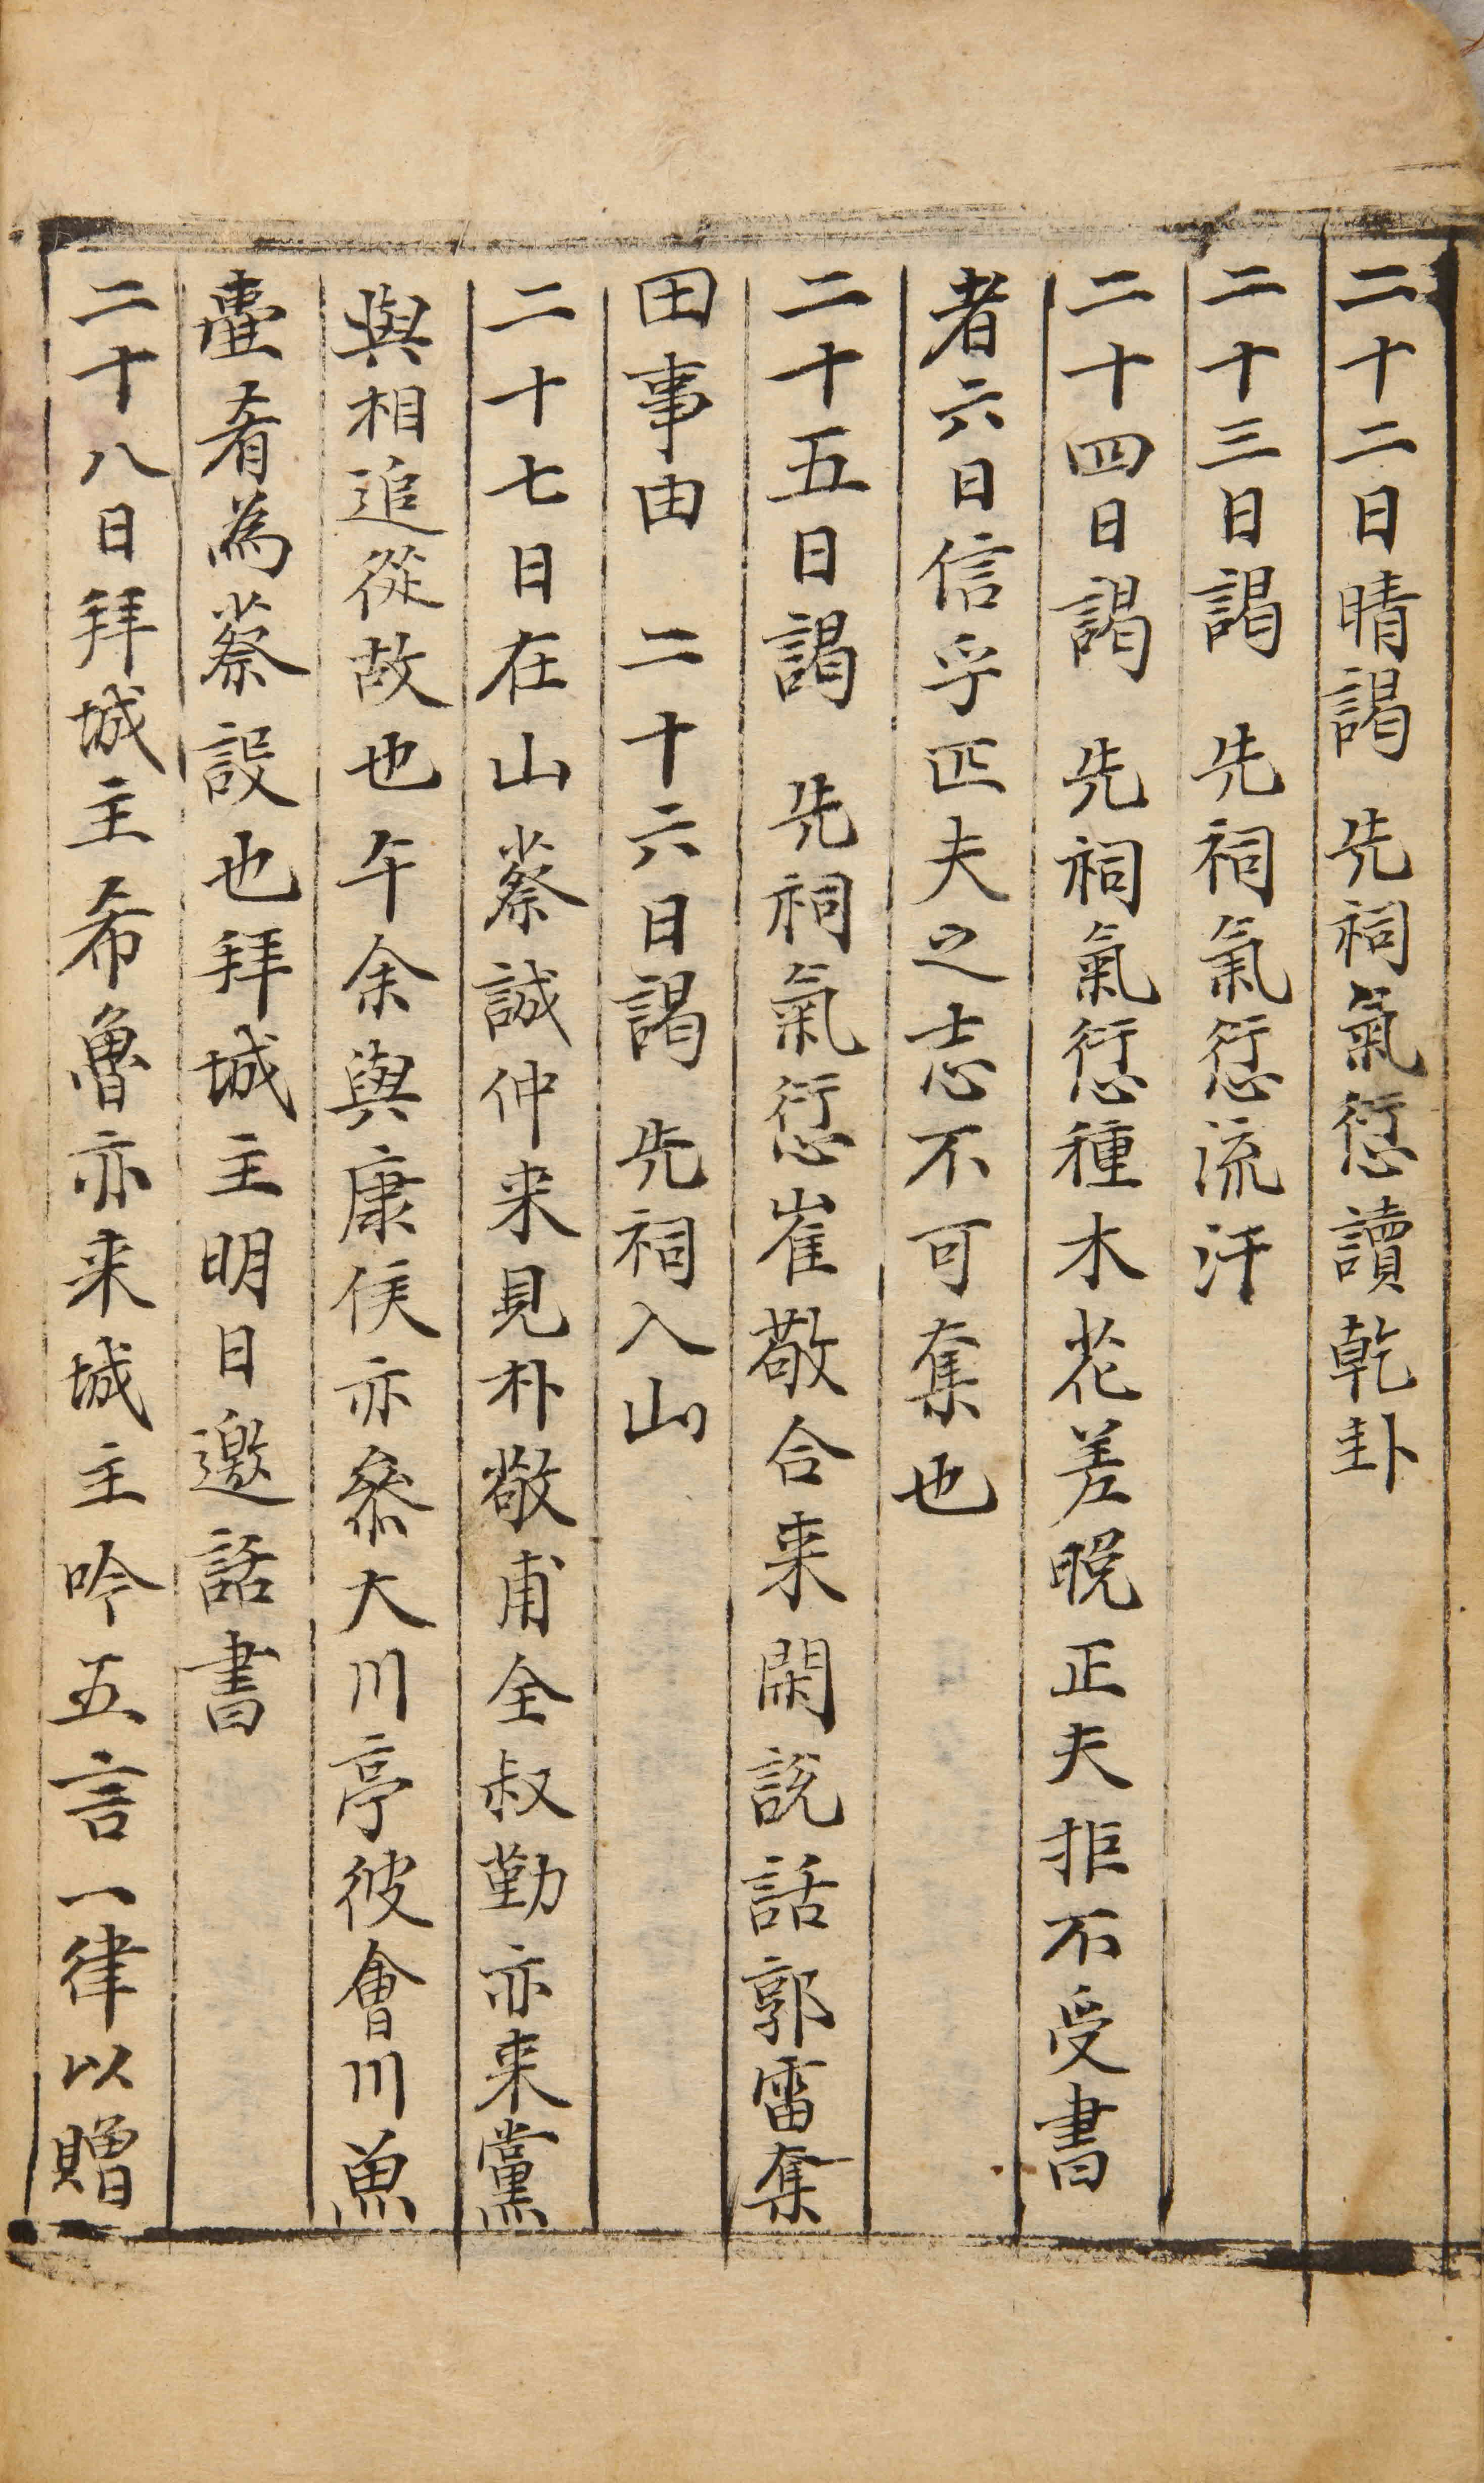 二十二日晴謁 先祠氣愆讀乾卦
二十三日謁 先祠氣愆流汗
二十四日謁 先祠氣愆種木花差晩正夫拒不受書
者六日信乎匹夫之志不可奪也
二十五日謁 先祠氣愆崔敬合来閑說話郭雷奪
田事由 二十六日謁 先祠入山
二十七日在山蔡誠仲来見朴敬甫全叔勤亦来黨
與相追從故也午余與康侯亦叅大川亭彼會川魚
壺肴為蔡設也拜城主明日邀話書
二十八日拜城主希魯亦来城主吟五言一律以贈